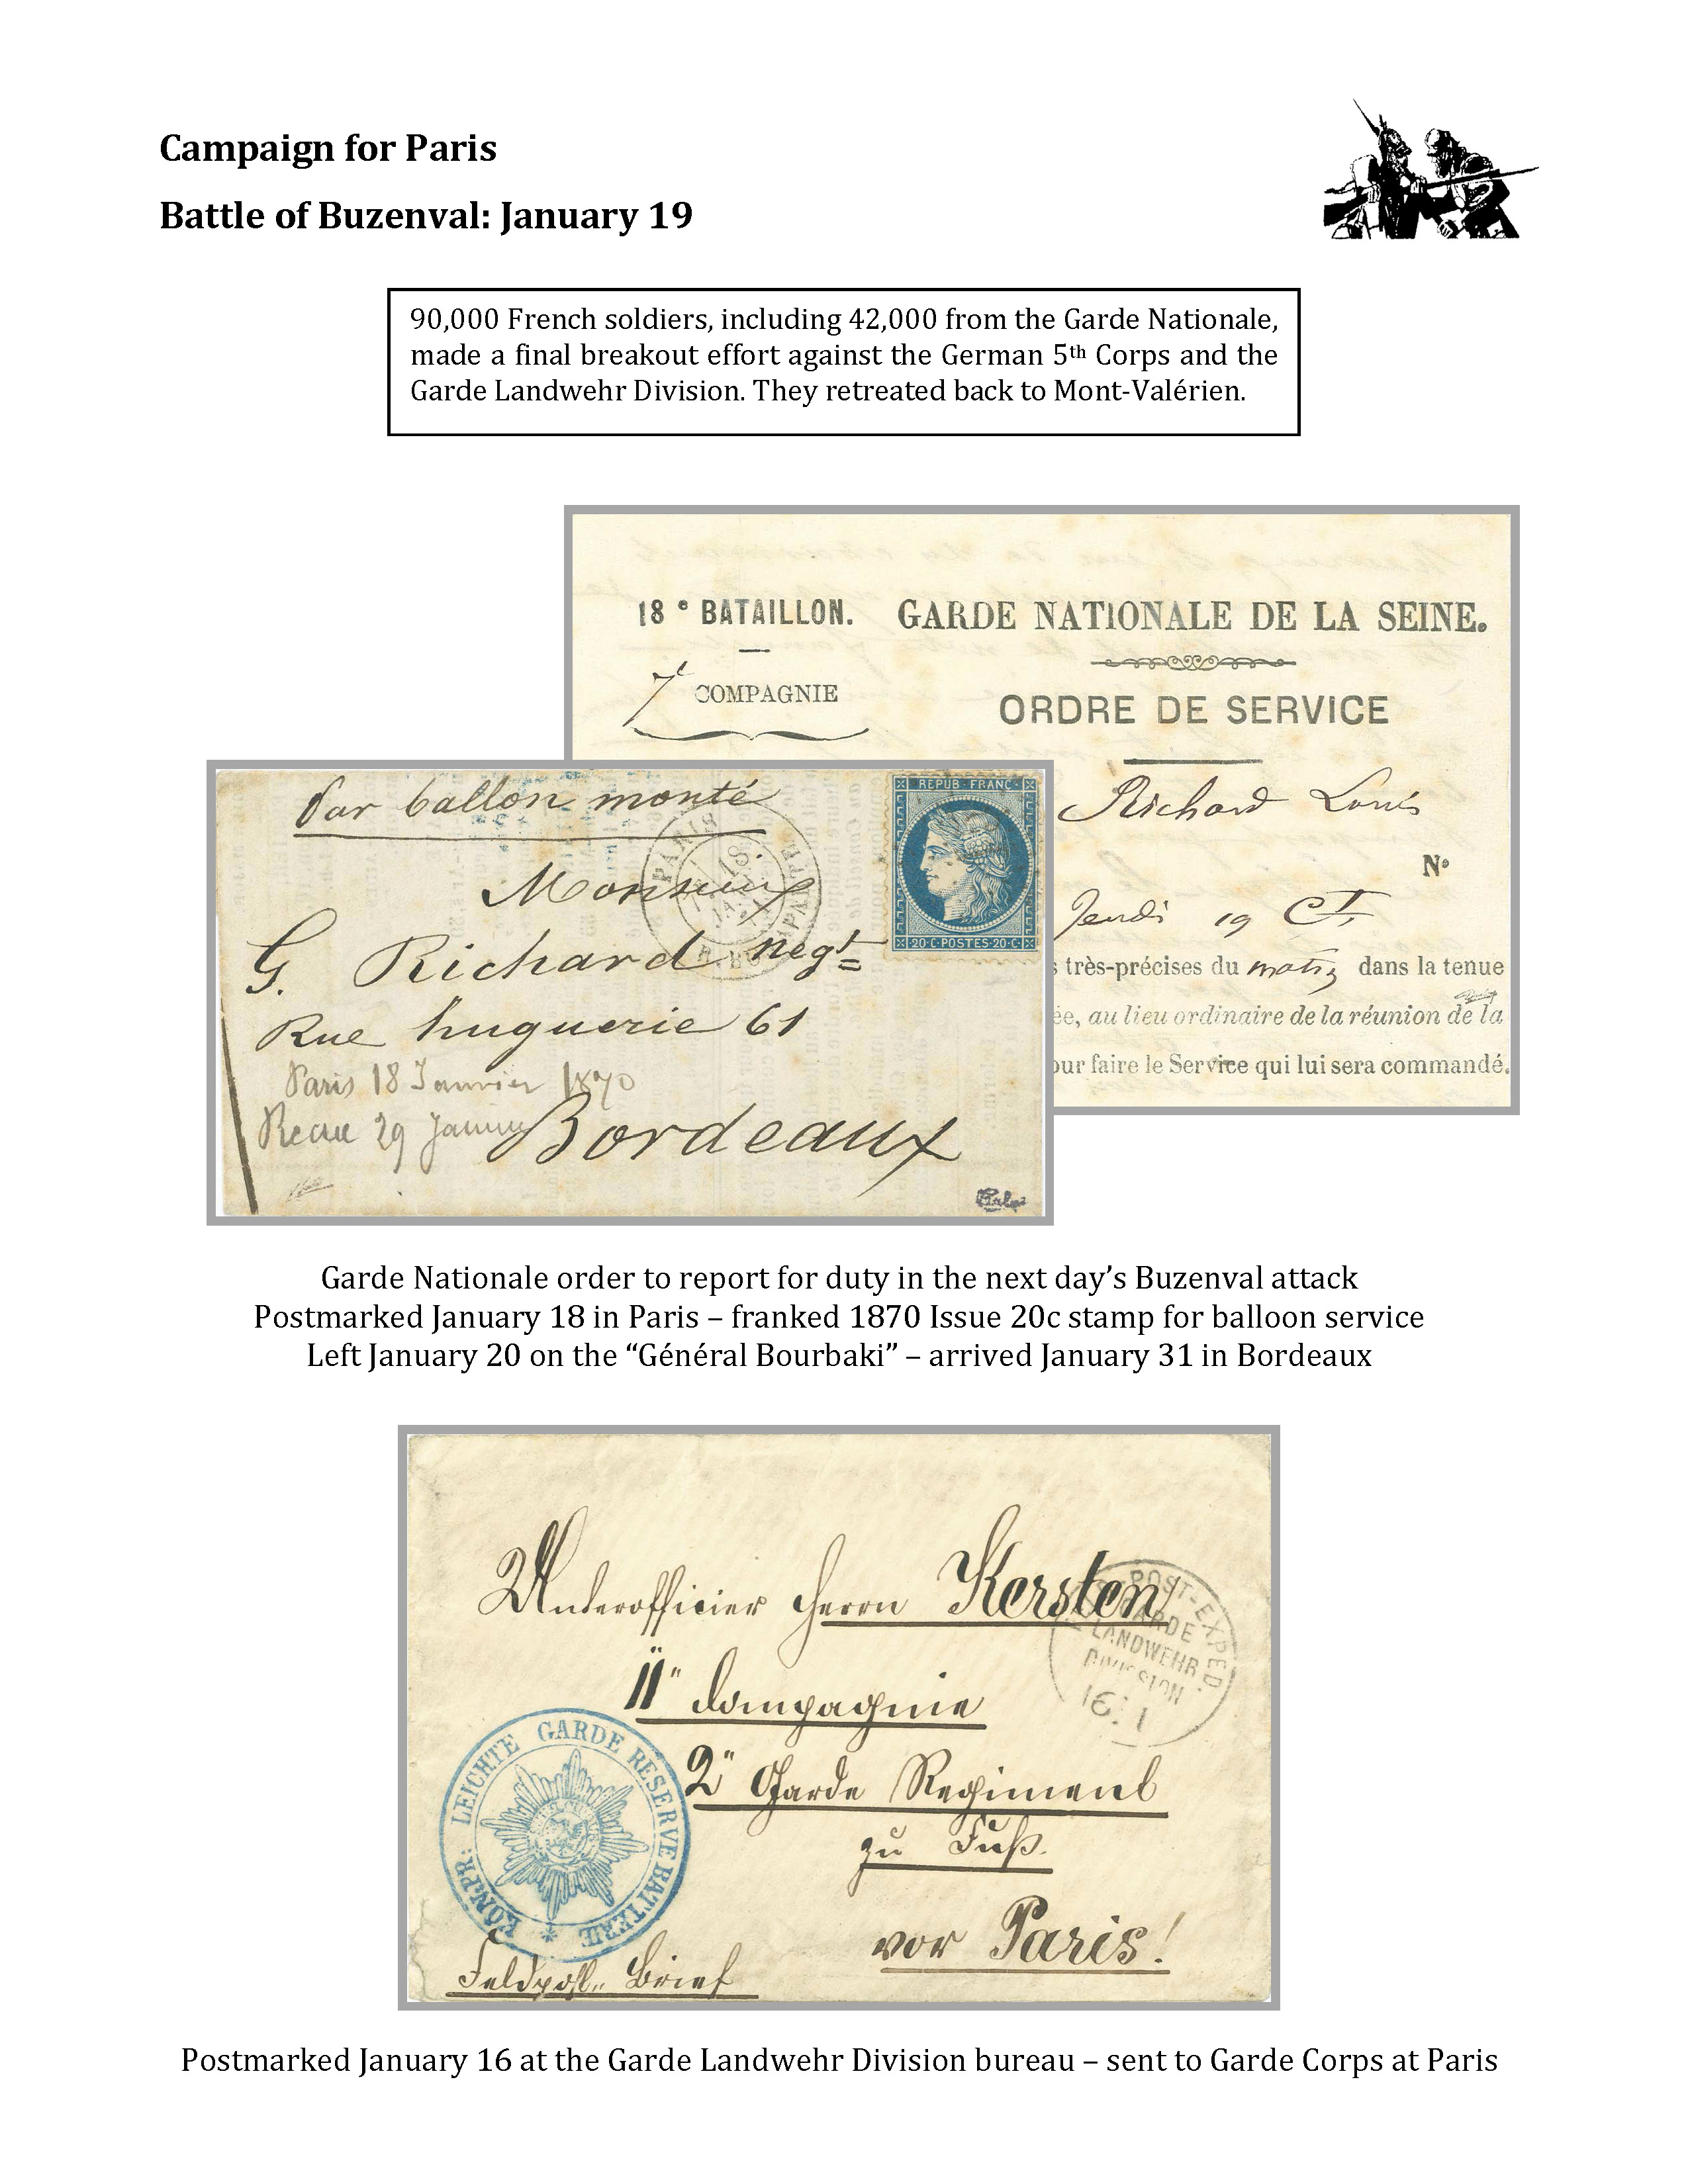 Campaign for Paris
Battle of Buzenval: January 19
90,000 French soldiers, including 42,000 from the Garde Nationale,
made a final breakout effort against the German 5th Corps and the
Garde Landwehr Division. They retreated back to Mont-Valérien.
18e BATAILLON.
7e COMPAGNIE
GARDE NATIONALE DE LA SEINE.
ORDRE DE SERVICE
Richard Louis
No
Jeudi 19 Ct
très-précises du matin dans la tenue
ée, au lieu ordinaire de la réunion de la
our faire le Service qui lui sera commandé.
Par ballon monté
REPUB · FRANC ·
20·C·POSTES·20·C·
PARIS
18
Monsieur
G. Richard negt
Rue huguerie 61
Paris 18 Janvier 1870
Recue 29 Janvier
Bordeaux
Garde Nationale order to report for duty in the next day’s Buzenval attack
Postmarked January 18 in Paris – franked 1870 Issue 20c stamp for balloon service
Left January 20 on the “Général Bourbaki” – arrived January 31 in Bordeaux
Unterofficier Herrn Kersten
POST-EXPED.
GARDE
LANDWEHR
DIVISION
16 1
11" Compagnie
2" Garde Regiment
zu Fuß.
vor Paris!
KÖN: PR: LEICHTE GARDE RESERVE BATTERIE *
Feldpost-Brief
Postmarked January 16 at the Garde Landwehr Division bureau – sent to Garde Corps at Paris